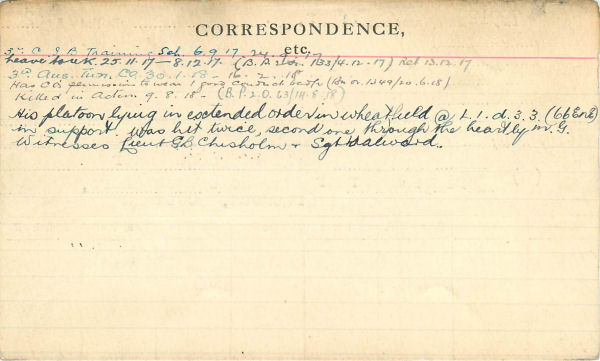 CORRESPONDENCE,
etc.
3rd C & B Training Sch. 6.9.17 24.
Leave to U.K. 25.11.17 — 8.12.17. (B.P.20. 133/4.12.17) Ret 13.12.17
3rd Aus. Tun. Co. 30.1.18 — 16.2.18
Has CO's permission to wear 1 (Bn or. 1349/20.6.18)
Killed in Action 9.8.18 - (B.P.2.O. 63/14.8.18)
His platoon lying in extended order in wheatfield @ L.1.d.3.3. (66EnE)
in support was hit twice, second one through the heart by m.G.
Witnesses Lieut G.B Chisholm & Sgt